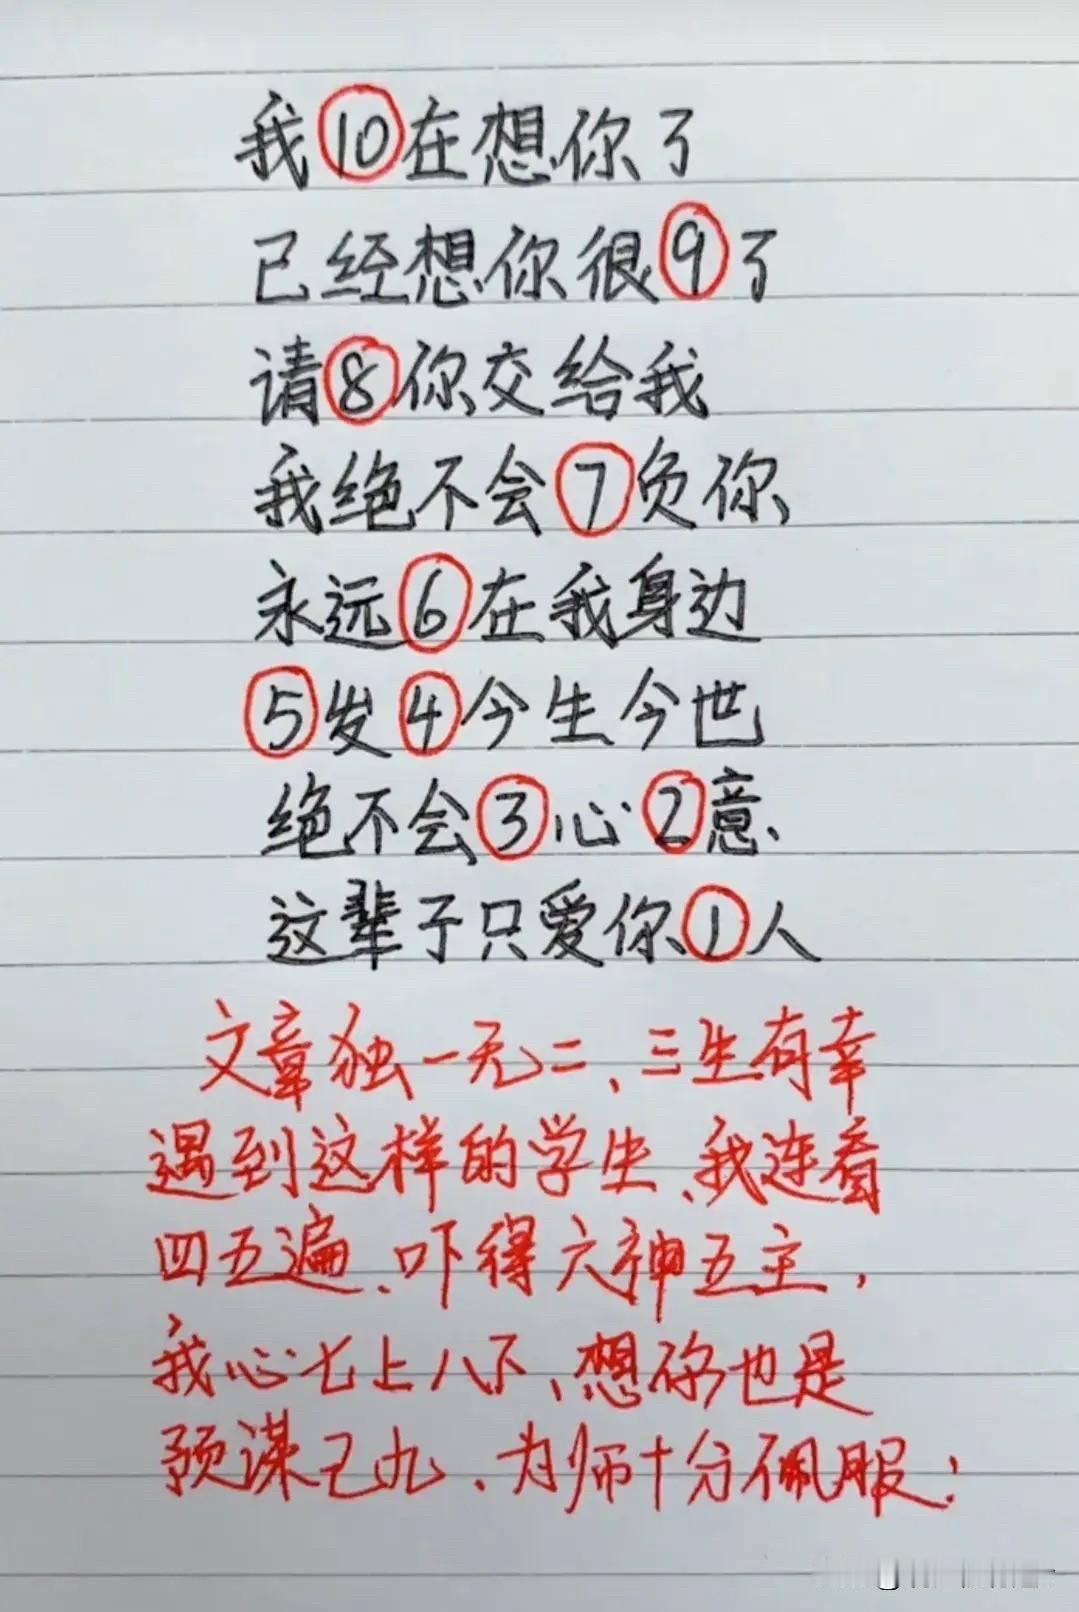 我⑩在想你了
已经想你很⑨了
请⑧你交给我
我绝不会⑦负你
永远⑥在我身边
⑤发④今生今世
绝不会③心②意
这辈子只爱你①人
文章独一无二、三生有幸
遇到这样的学生、我连看
四五遍、吓得六神五主，
我心七上八下、想你也是
预谋已九、为师十分佩服！